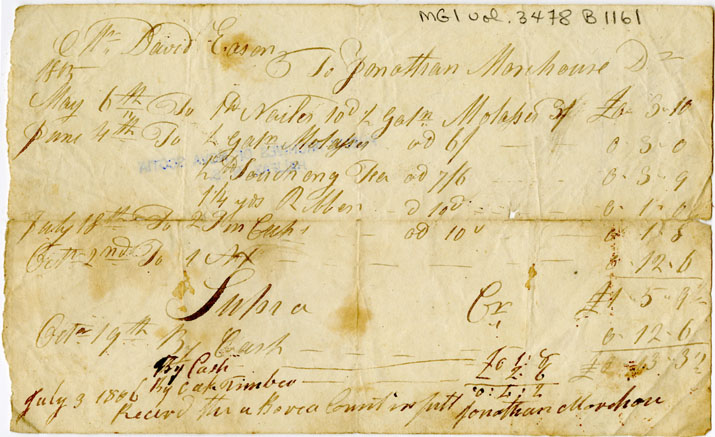 MG1 vol. 3478 B1161
Mr. David Eason
1805 To Jonathan Morehouse Dr
May 6th To 1 lb Nailes 10d ½ Galn Molases 3/ £0-3-10
June 4th To ½ Galn Molasses ad 6/ 0-3-0
½ lb Soucheng Tea ad 7/6 0-3-9
1¼ yds Ribben d 10d 0-1-0
July 18th To 2 Tin Cups ad 10d 0-1-8
Octr 2nd To 1 Ax 0-12-6
Supra Cr £1-5-9
Octr 19th By Cash 0-12-6
By Cash
By Timber
July 3 1806
Recevd the a Bove a Count in full Jonathan Morehouse